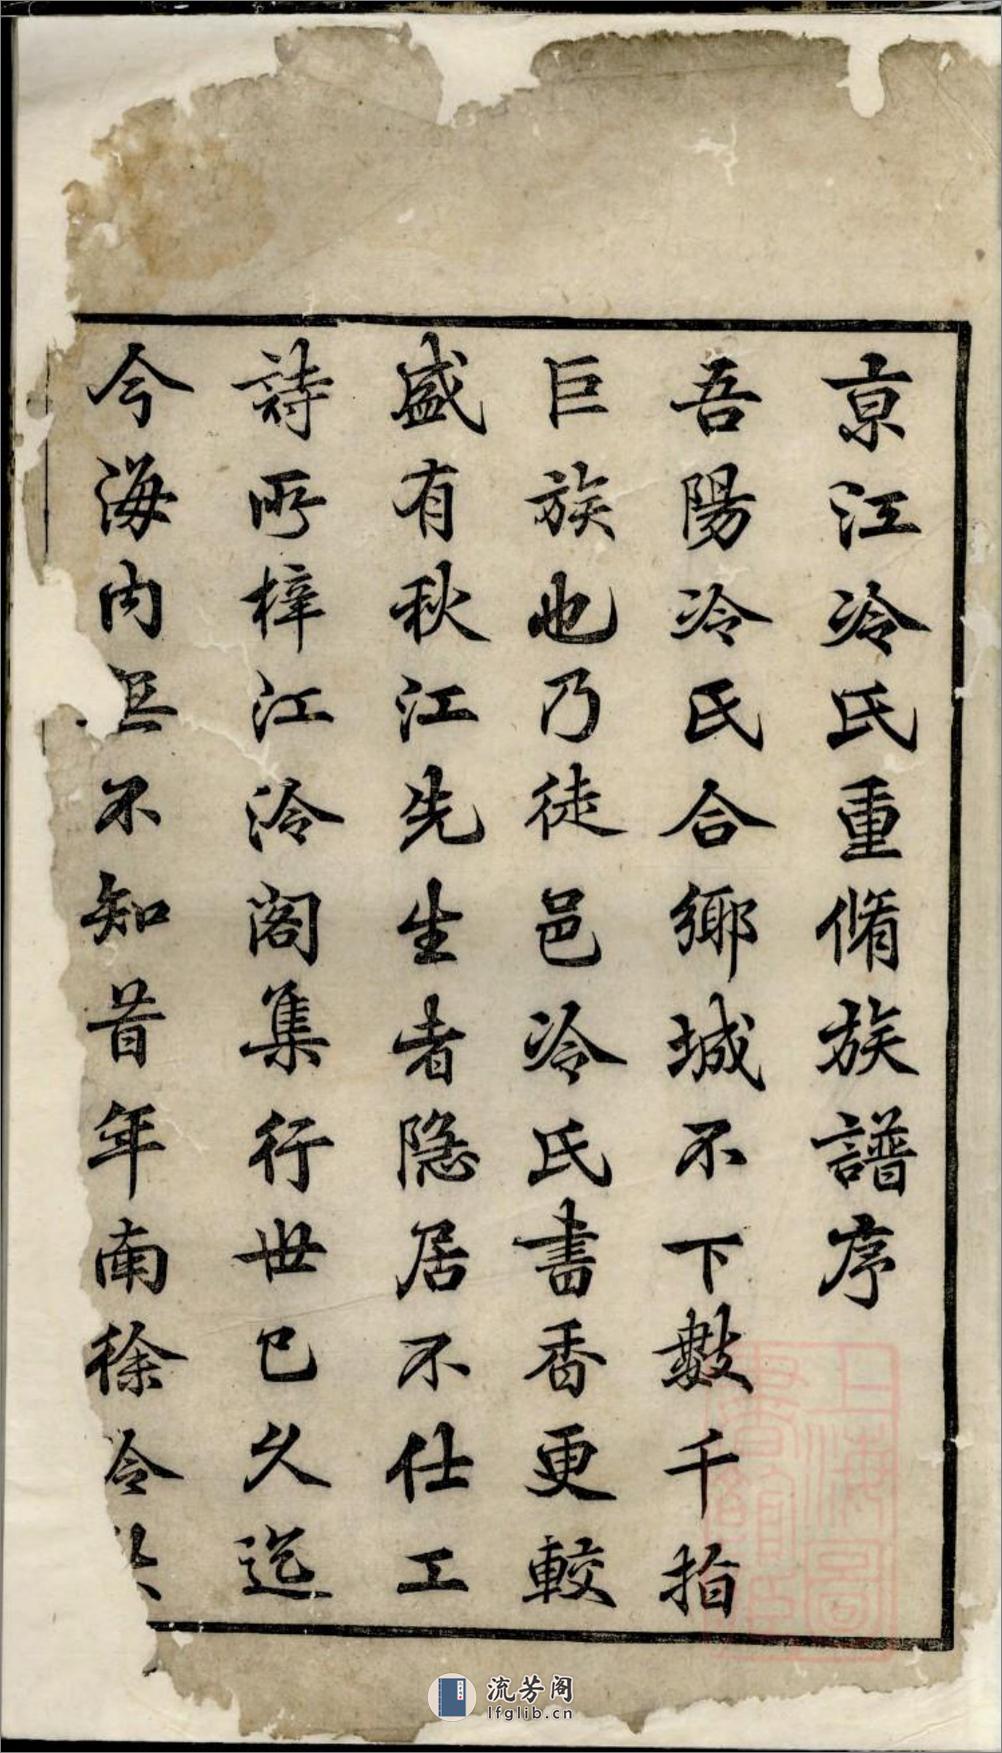 京江冷氏重脩族譜序
吾陽冷氏合鄉城不下數千指
巨族也乃徒邑冷氏書香更較
盛有秋江先生者隐居不仕工
詩所梓江泠阁集行世已久迄
今海内 不知首年南徐冷
上海圖書館藏
流芳阁
lfglib.cn